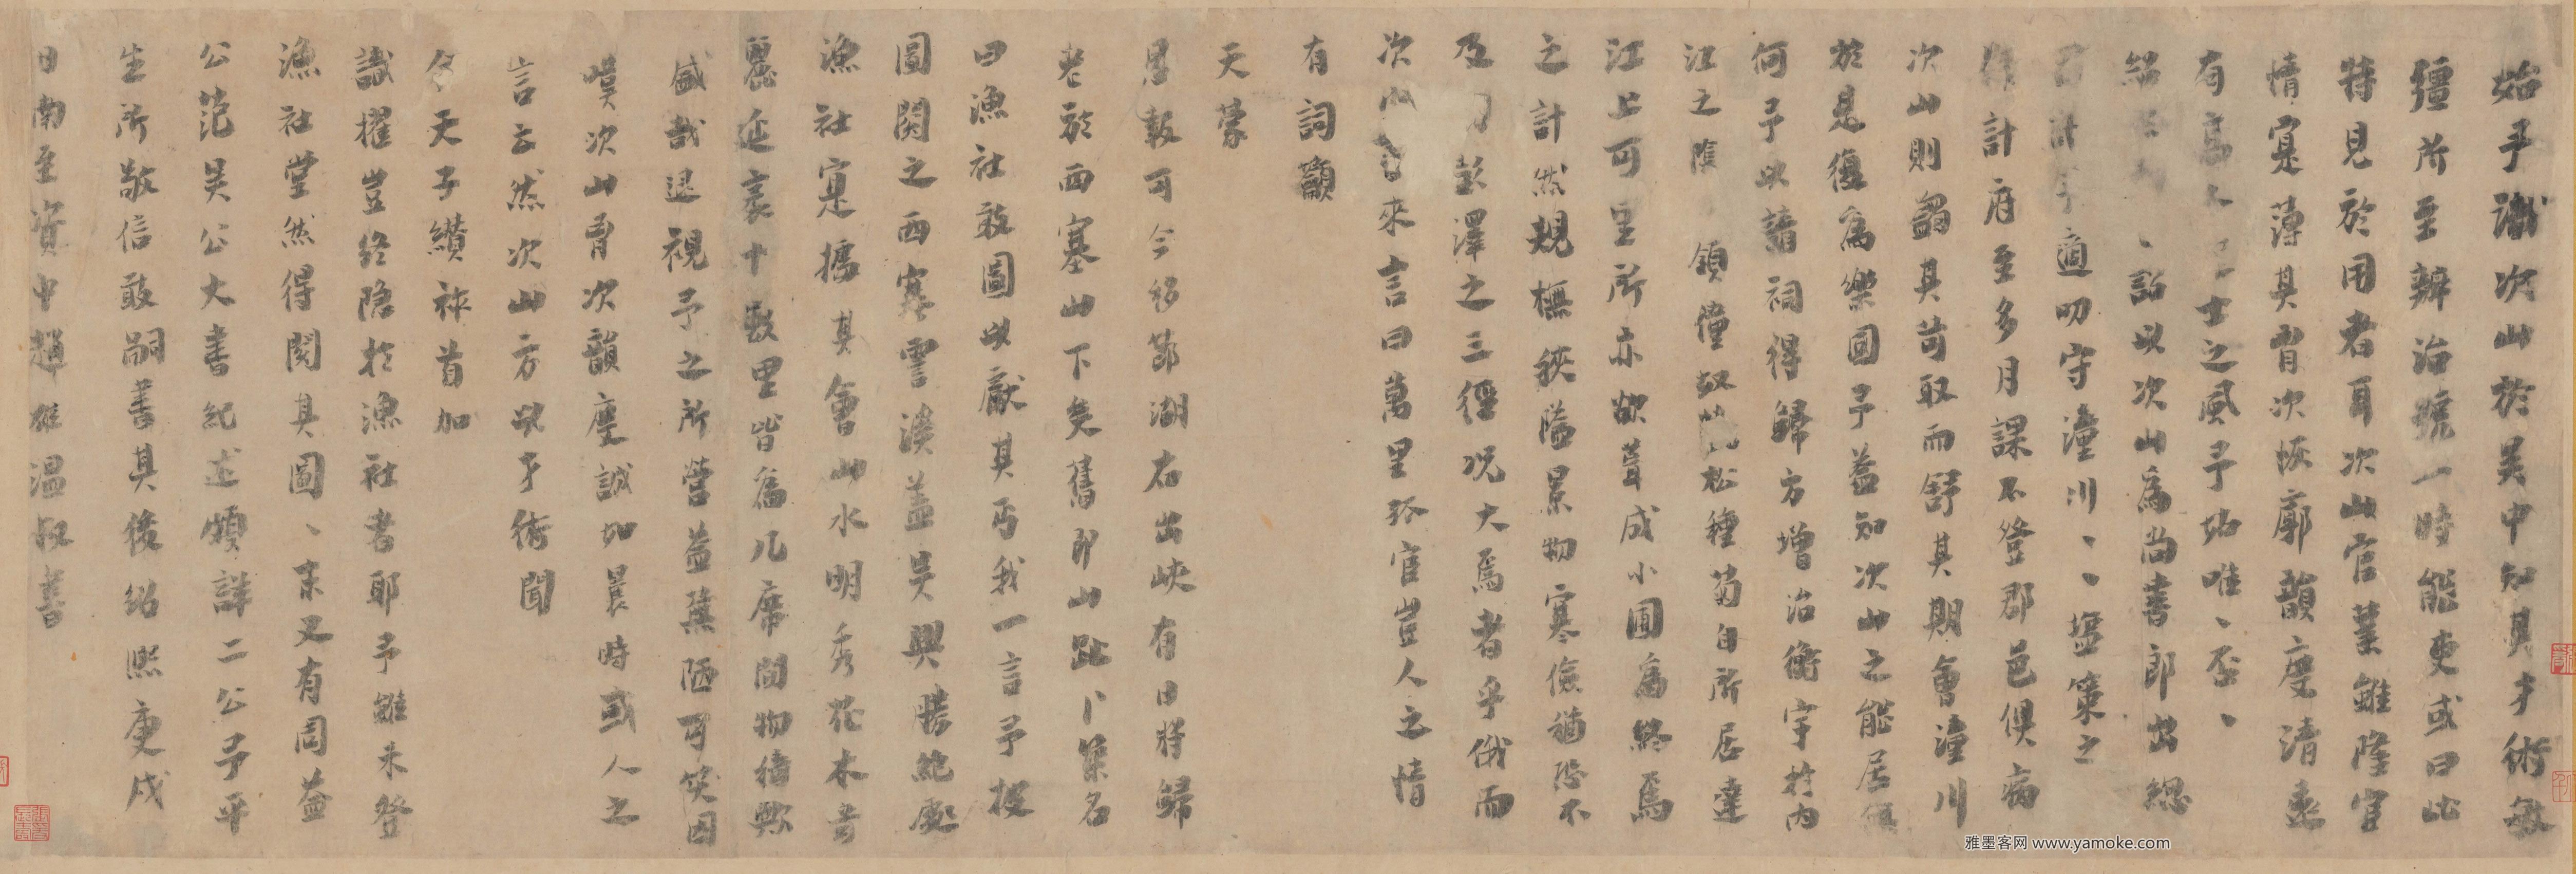 始予識次山於吳中知其才術敏
彊所至辦治號一時能吏或曰此
特見於用者耳次山官業雖隆官
情寔薄其胷次恢廓韻度清遠
有高人士之風予始唯、否、
紹、詔以次山為尚書郎出總
計予適叨守潼川、、壥策之
計府至多月課不登郡邑俱病
次山則蠲其苛取而舒其期會潼川
於是復為樂國予益知次山之能居
何予以請祠得歸方增治衡宇於內
江之隈領僮奴蓺松種菊自所居達
江上可里所亦欲葺成小圃為終焉
之計然規橅狹隘景物寒儉猶恐不
及彭澤之三徑況大焉者乎俄而
次山書來言曰萬里孤官豈人之情
有詞籲
天蒙
恩報可今移節湖右出峽有日將歸
老於西塞山下矣舊即山趾卜築名
曰漁社敢圖以獻其丐我一言予披
圖閱之西塞雪溪蓋吳興勝絕處
漁社寔據其會山水明秀花木奇
麗延袤十數里皆為几席間物猗歟
盛哉退視予之所營益蕪陋可笑因
嘆次山胷次韻度誠如曩時或人之
言云然次山方以才術聞
今天子纘祚首加
識擢豈終隱於漁社者耶予雖未登
漁社堂然得閱其圖、末又有周益
公范吳公大書紀述頗詳二公予平
生所敬信敢嗣書其後紹熙庚戌
日南至資中趙雄溫叔書
雅墨客网 www.yamoke.com